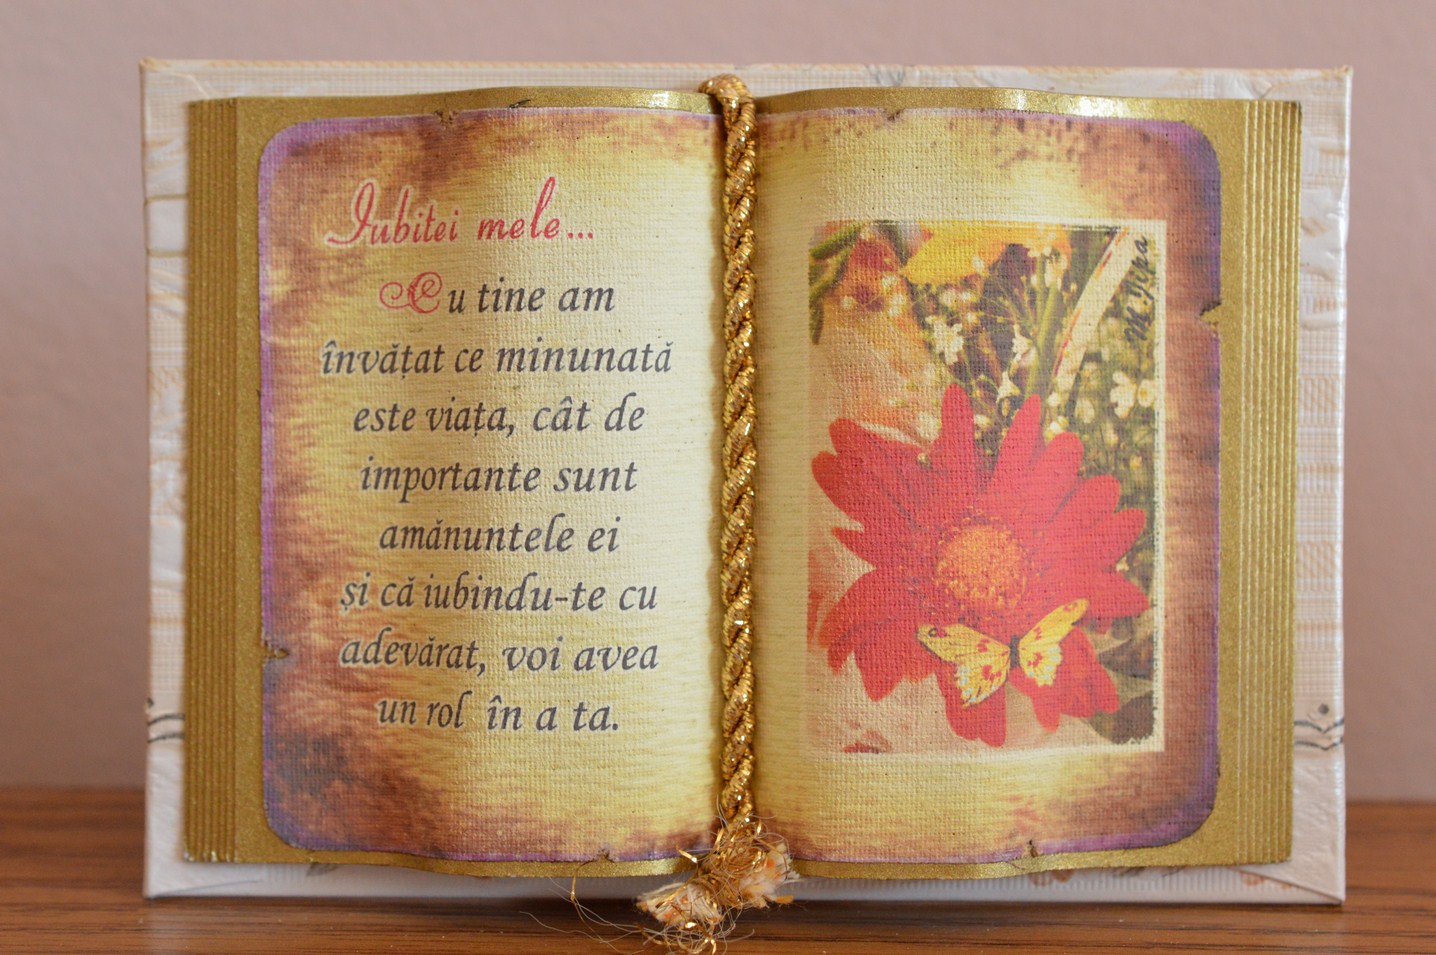 Iubitei mele...
Cu tine am
învățat ce minunată
este viața, cât de
importante sunt
amănuntele ei
și că iubindu-te cu
adevărat, voi avea
un rol în a ta.